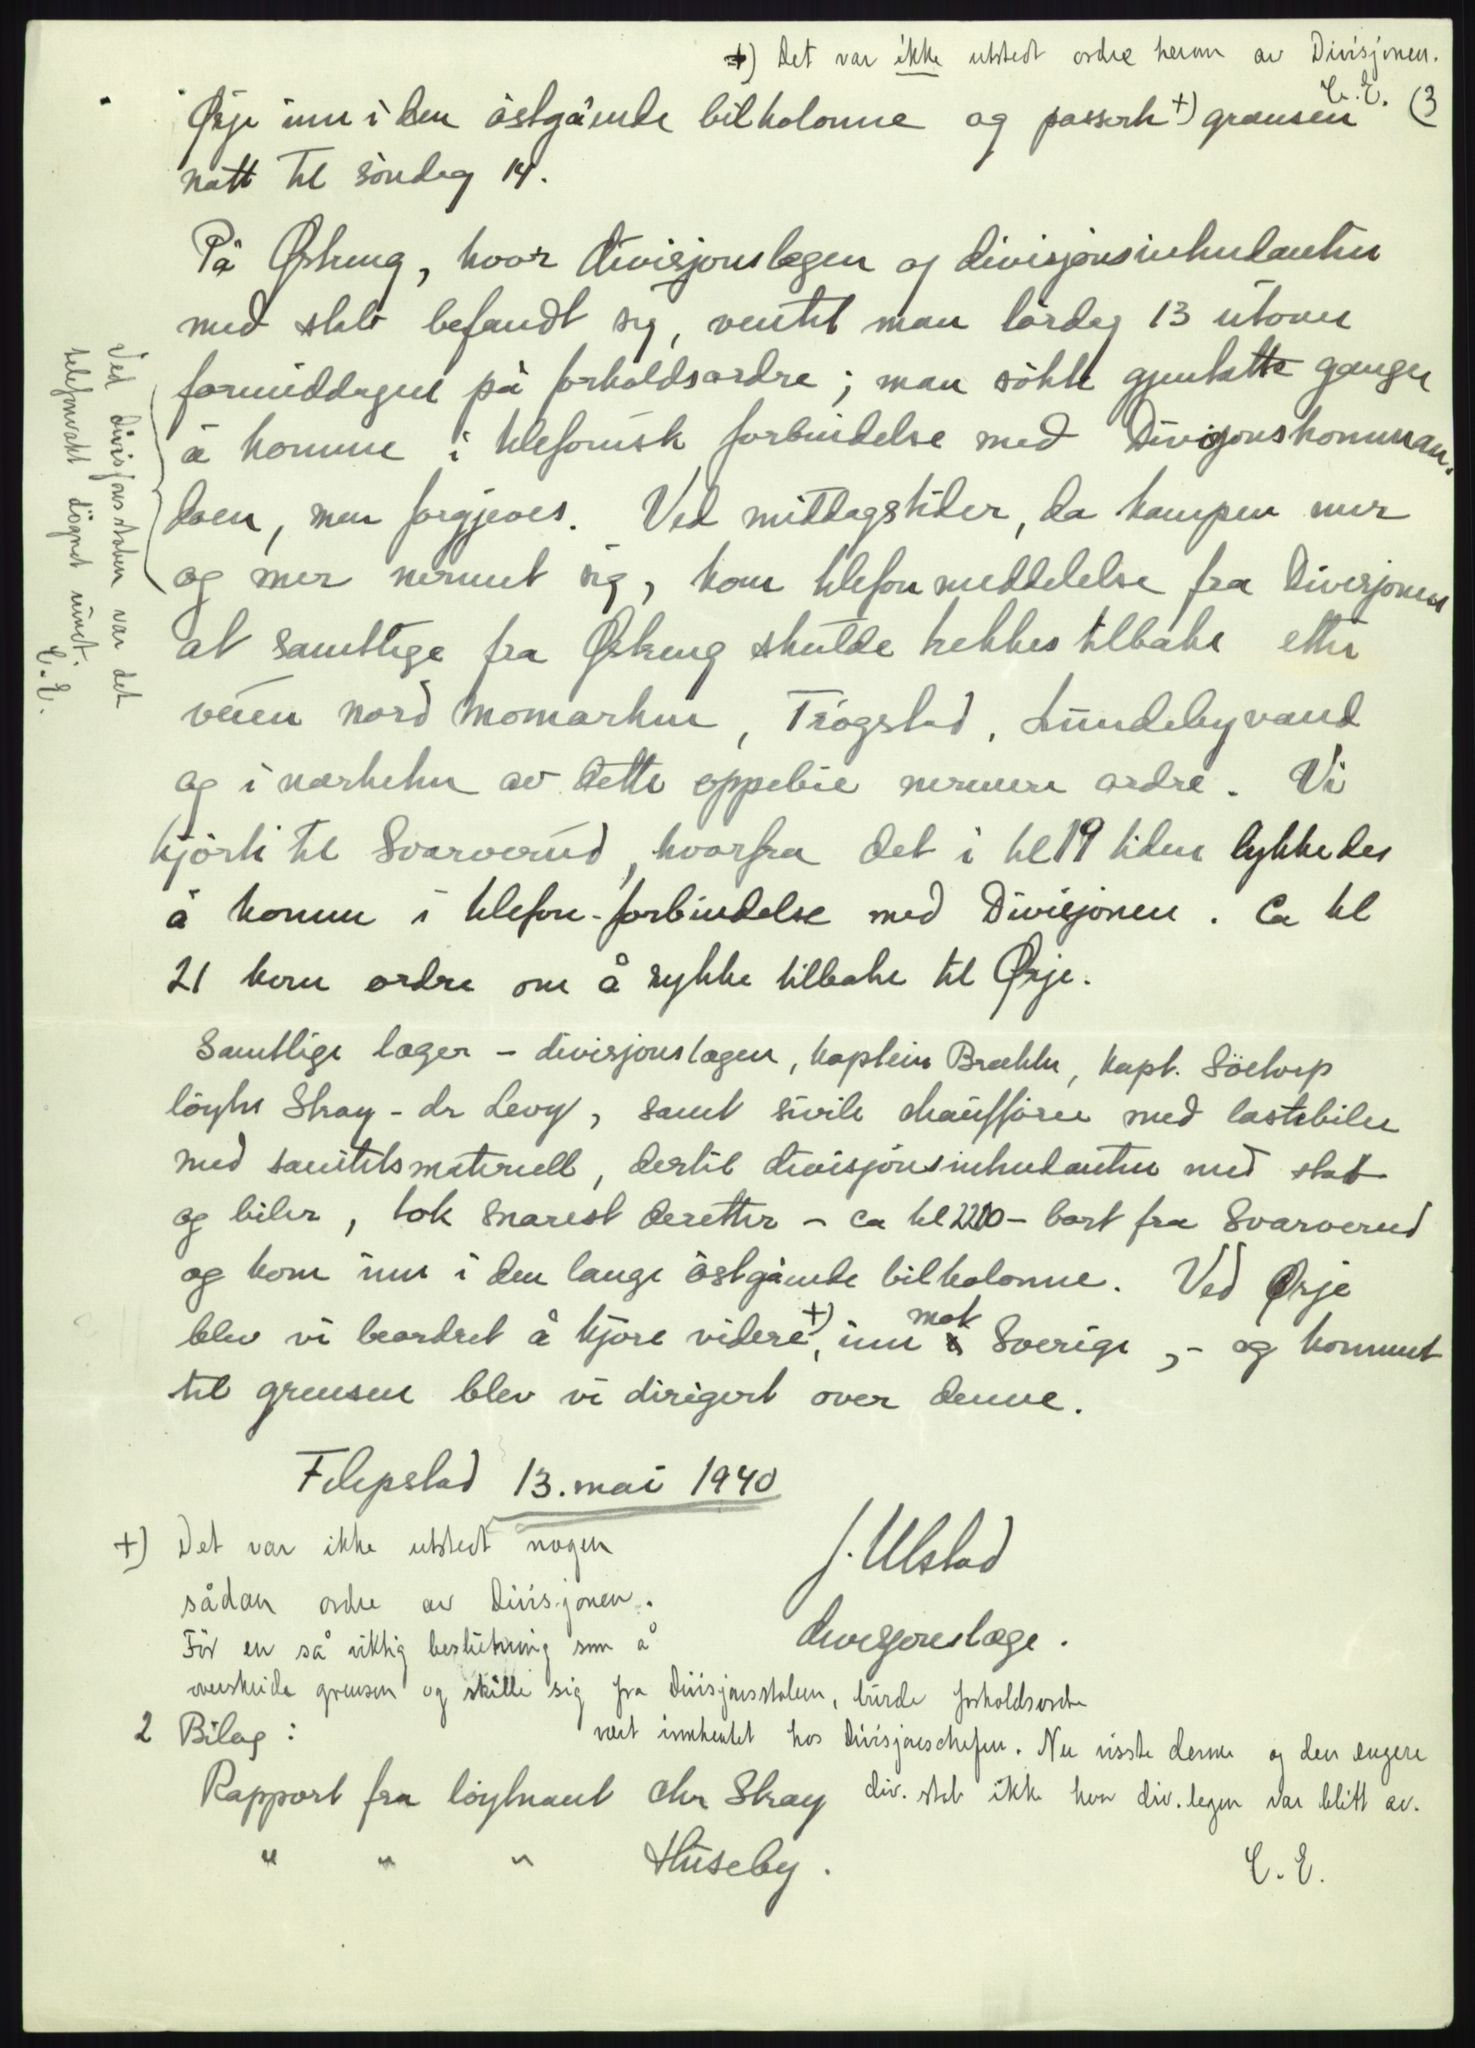 +) Det var ikke utstedt ordre herom av Divisjonen.
C. E. (3
Ørje inn i den östgående bilkolonne og passerte +) grensen
natt til söndag 14.
På Østeng, hvor divisjonslegen og divisjonsintendanten
med stab befandt sig, ventet man lördag 13 utover
formiddagen på forholdsordre; man sökte gjentatte ganger
å komme i telefonisk forbindelse med Divisjonskomman-
doen, men forgjeves. Ved middagstider, da kampen mer
og mer nermet sig, kom telefonmeddelelse fra Divisjonen
at samtlige fra Østeng skulde trekkes tilbake etter
veien nord Momarken, Trögstad, Lundebyvand
og i nærheten av dette oppebie nermere ordre. Vi
kjörte til Svarverud, hvorfra det i kl 19 tiden lykkedes
å komme i telefon-forbindelse med Divisjonen. Ca kl
21 kom ordre om å rykke tilbake til Ørje.
Samtlige læger - divisjonslægen, kaptein Brække, kapt. Söetorp
löytn Stray - dr Levy, samt sivile chaufförer med lastebiler
med sanitetsmateriell, dertil divisjonsintendanten med stab
og biler, tok snarest deretter - ca kl 2210 - bort fra Svarverud
og kom inn i den lange östgående bilkolonne. Ved Ørje
blev vi beordret å kjöre videre +), inn mot Sverige, - og kommet
til grensen blev vi dirigert over denne.
Filipstad 13. mai 1940
J. Ulstad
divisjonslæge.
+) Det var ikke utstedt nogen
sådan ordre av Divisjonen.
För en så viktig beslutning som å
overskride grensen og skille sig fra Divisjonsstaben, burde forholdsordre
vært innhentet hos Divisjonschefen. Nu visste denne og den engere
div. stab ikke hvor div. legen var blitt av.
C. E.
2 Bilag:
Rapport fra löytnant Chr Stray
" " " Huseby.
Ved divisjonsstaben var det
telefonvakt dögnet rundt.
C. E.